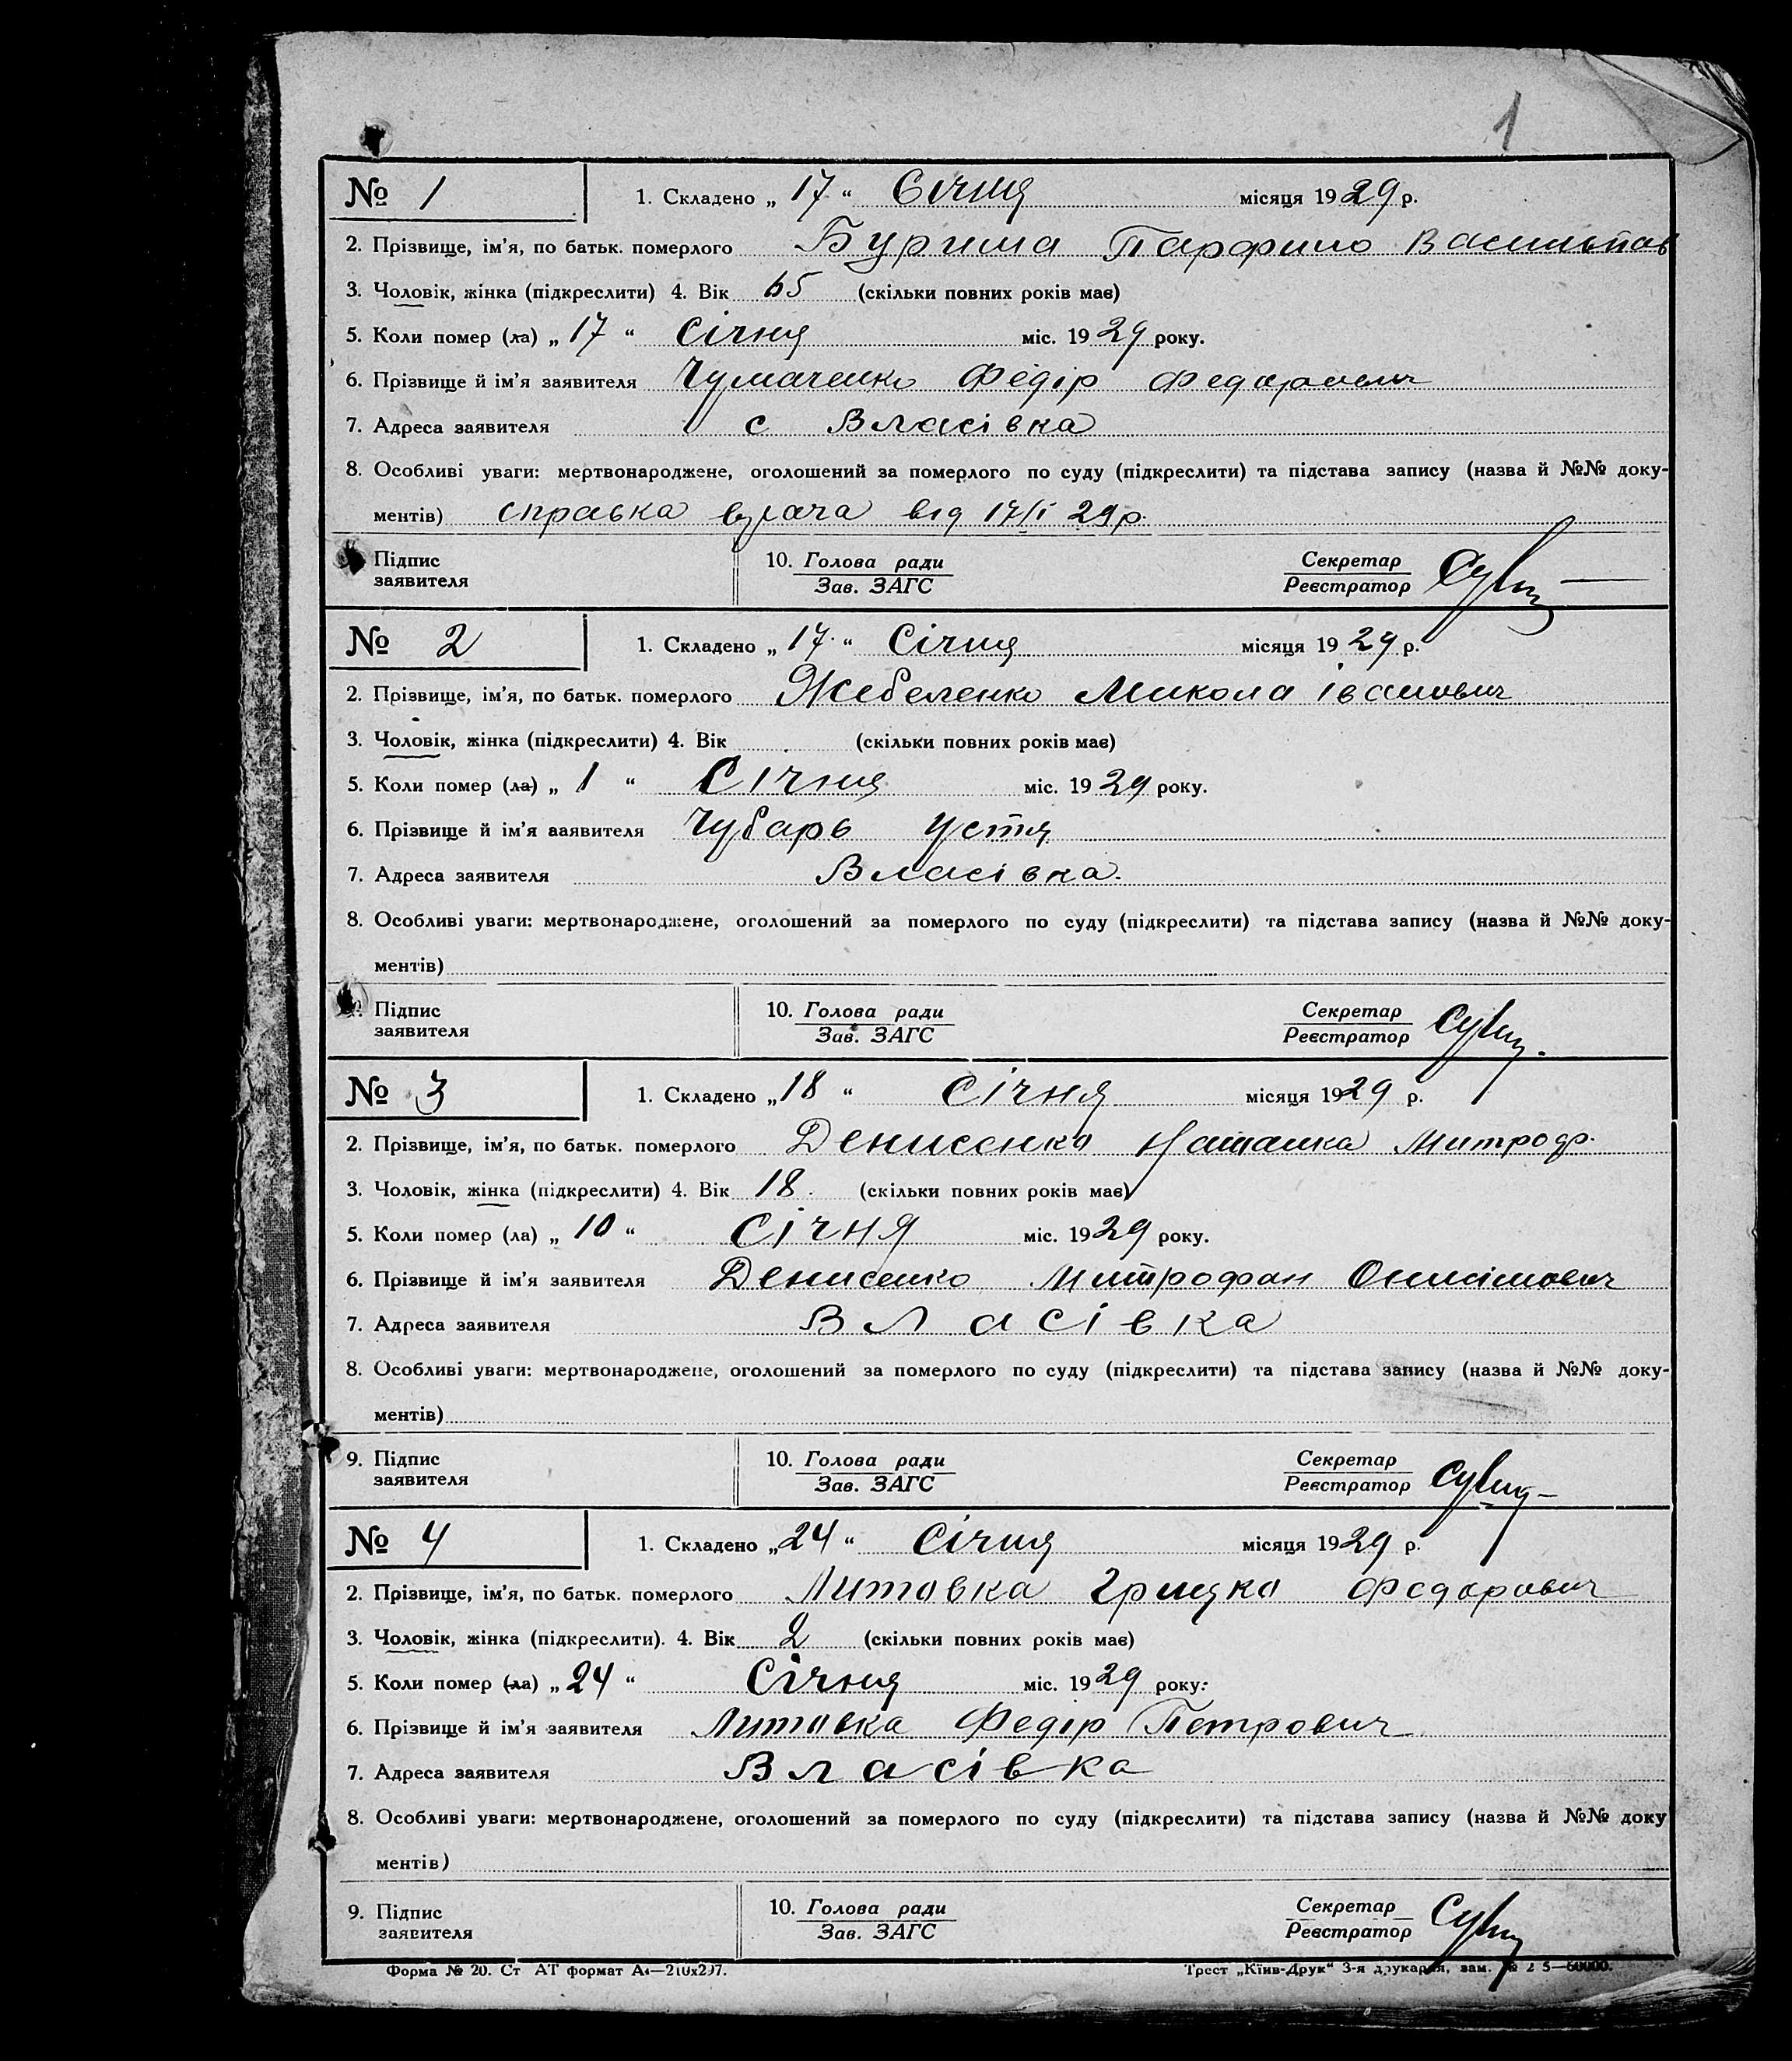 1
№ 1 1. Складено „ 17 “ Січня місяця 1929 р.
2. Прізвище, ім'я, по батьк. померлого Бурима Парфило Васильов
3. Чоловік, жінка (підкреслити) 4. Вік 65 (скільки повних років має)
5. Коли помер (ла) „ 17 “ Січня міс. 1929 року.
6. Прізвище й ім'я заявителя Чумаченко Федір Федорович
7. Адреса заявителя с Власівка
8. Особливі уваги: мертвонароджене, оголошений за померлого по суду (підкреслити) та підстава запису (назва й №№ доку-
ментів) справка врача від 17/I 29р.
Підпис 10. Голова ради Секретар
заявителя Зав. ЗАГС Реєстратор
№ 2 1. Складено „ 17 “ Січня місяця 1929 р.
2. Прізвище, ім'я, по батьк. померлого Жебеленко Микола Іванович
3. Чоловік, жінка (підкреслити) 4. Вік (скільки повних років має)
5. Коли помер (ла) „ 1 “ Січня міс. 1929 року.
6. Прізвище й ім'я заявителя Чубарь Устя
7. Адреса заявителя Власівка.
8. Особливі уваги: мертвонароджене, оголошений за померлого по суду (підкреслити) та підстава запису (назва й №№ доку-
ментів)
Підпис 10. Голова ради Секретар
заявителя Зав. ЗАГС Реєстратор
№ 3 1. Складено „ 18 “ Січня місяця 1929 р.
2. Прізвище, ім'я, по батьк. померлого Денисенко Наталка Митроф.
3. Чоловік, жінка (підкреслити) 4. Вік 18. (скільки повних років має)
5. Коли помер (ла) „ 10 “ Січня міс. 1929 року.
6. Прізвище й ім'я заявителя Денисенко Митрофан Онисімович
7. Адреса заявителя Власівка
8. Особливі уваги: мертвонароджене, оголошений за померлого по суду (підкреслити) та підстава запису (назва й №№ доку-
ментів)
9. Підпис 10. Голова ради Секретар
заявителя Зав. ЗАГС Реєстратор
№ 4 1. Складено „ 24 “ Січня місяця 1929 р.
2. Прізвище, ім'я, по батьк. померлого Литовка Грицко Федорович
3. Чоловік, жінка (підкреслити). 4. Вік 2 (скільки повних років має)
5. Коли помер (ла) „ 24 “ Січня міс. 1929 року.
6. Прізвище й ім'я заявителя Литовка Федір Петрович
7. Адреса заявителя Власівка
8. Особливі уваги: мертвонароджене, оголошений за померлого по суду (підкреслити) та підстава запису (назва й №№ доку
ментів)
9. Підпис 10. Голова ради Секретар
заявителя Зав. ЗАГС Реєстратор
Форма № 20. Ст АТ формат А4—210х297. Трест „Київ-Друк“ 3-я друкарня, зам.